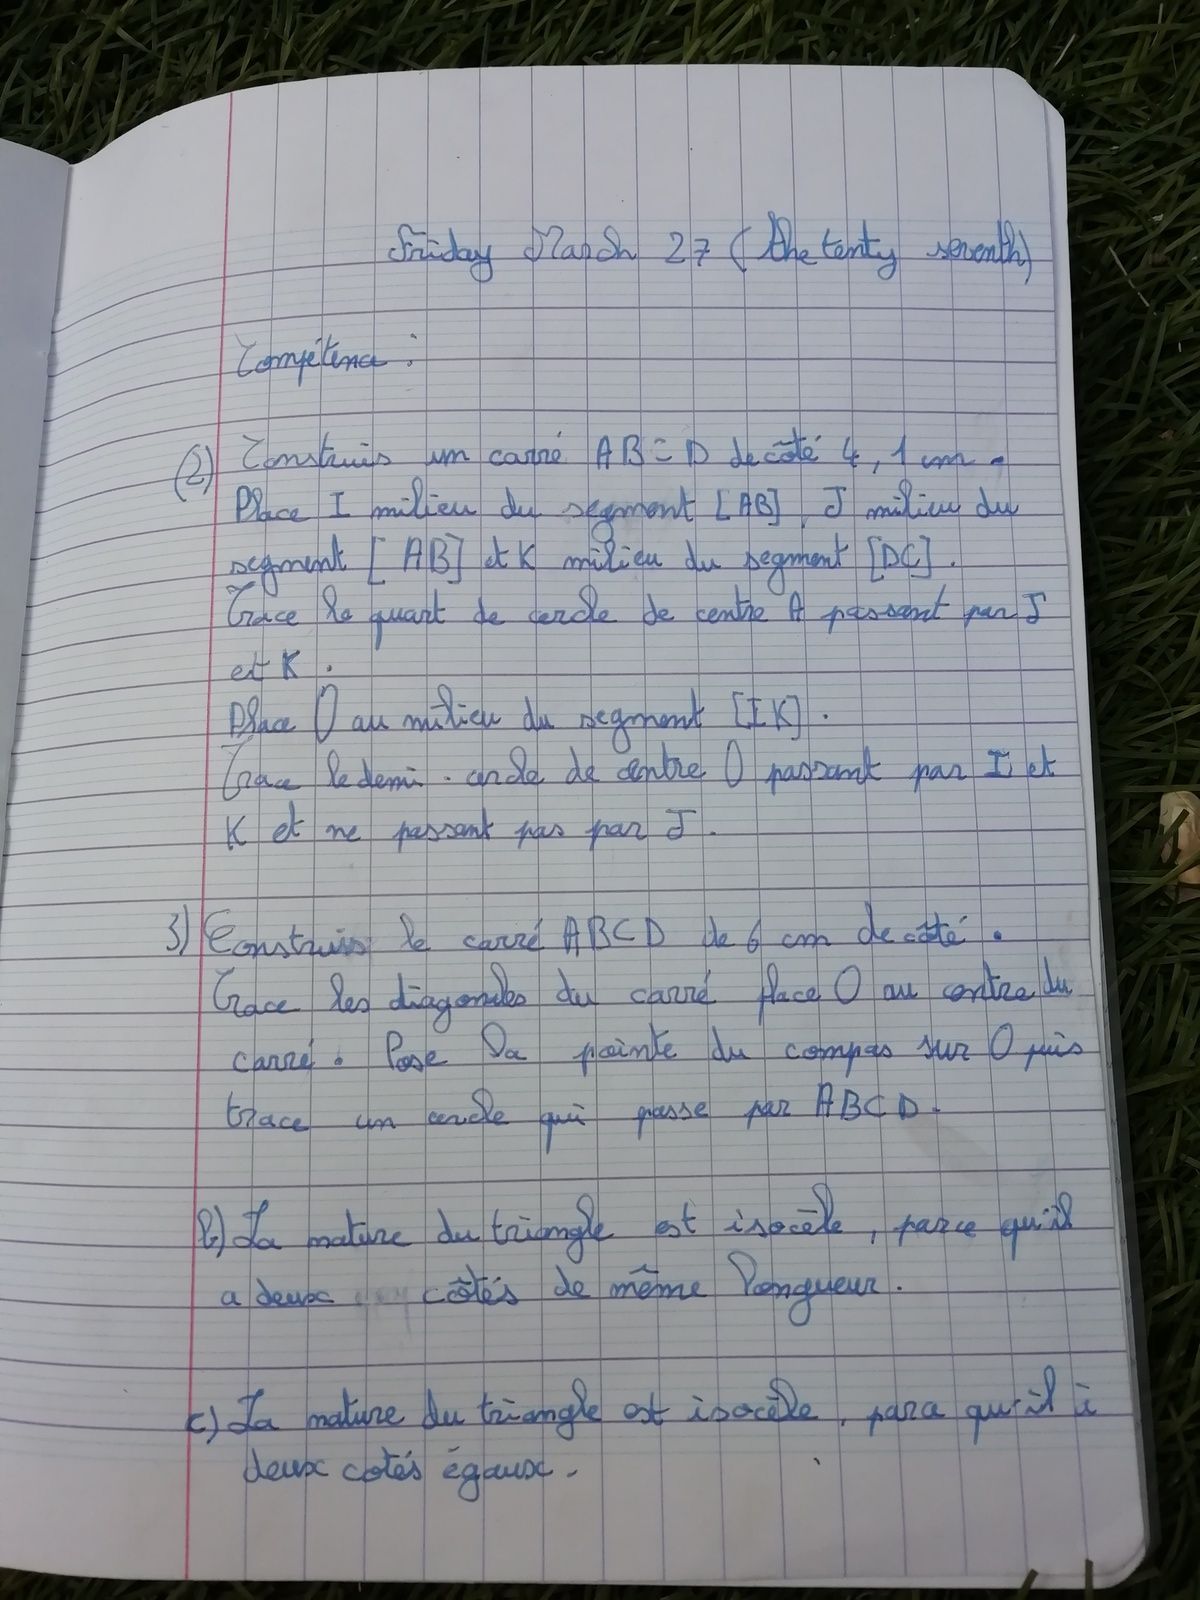 Friday March 27 (the tenty seventh)
Compétence :
(2) Construis un carré ABCD de côté 4,1 cm.
Place I milieu du segment [AB], J milieu du
segment [AB] et K milieu du segment [DC].
Trace le quart de cercle de centre A passant par J
et K.
Place O au milieu du segment [IK].
Trace le demi-cercle de centre O passant par I et
K et ne passant pas par J.
3) Construis le carré ABCD de 6 cm de côté.
Trace les diagonales du carré place O au centre du
carré. Pose la pointe du compas sur O puis
trace un cercle qui passe par ABCD.
b) La nature du triangle est isocèle, parce qu'il
a deux côtés de même longueur.
c) La nature du triangle est isocèle, parce qu'il à
deux cotés égaux.